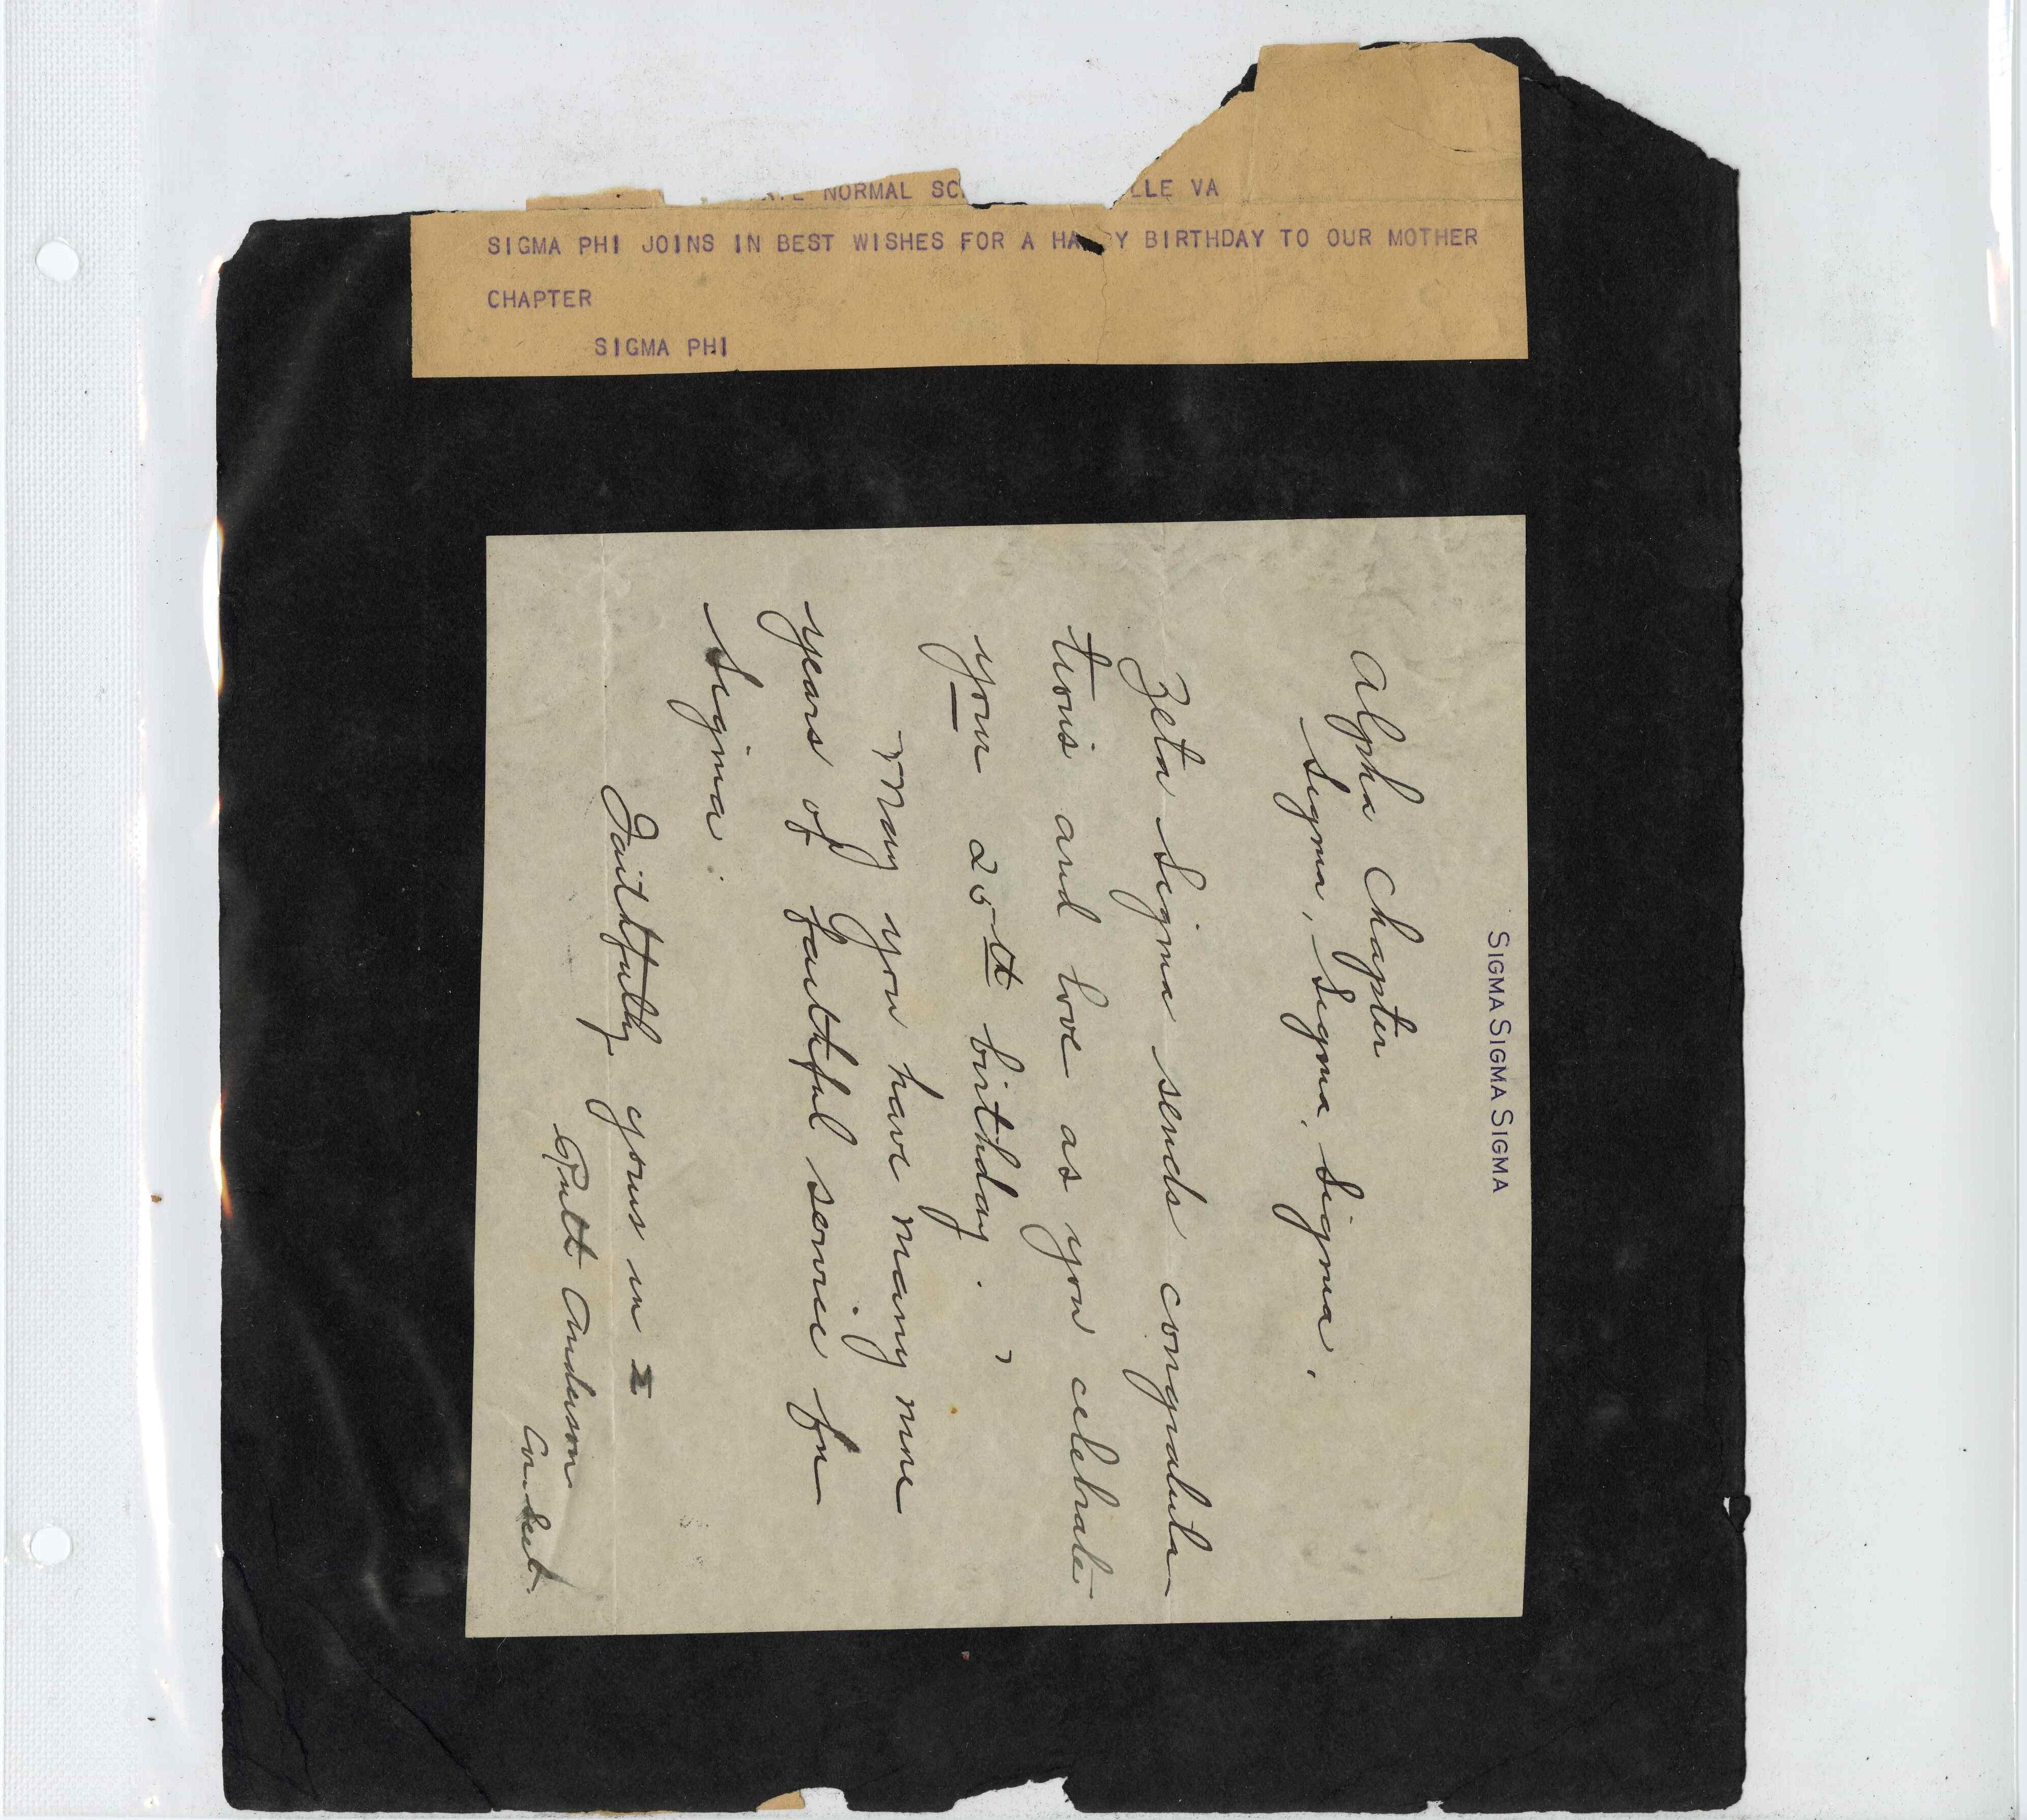 NORMAL VA
SIGMA PHI JOINS IN BEST WISHES FOR A HA Y BIRTHDAY TO OUR MOTHER
CHAPTER
SIGMA PHI
SIGMA SIGMA SIGMA
Alpha Chapter
Sigma, Sigma, Sigma.
Zeta Sigma sends congratula-
tions and love as you celebrate
your 25th birthday.
May you have many more
years of faithful service for
Sigma.
Faithfully yours in Σ
Ruth Anderson
Cor. Sect.